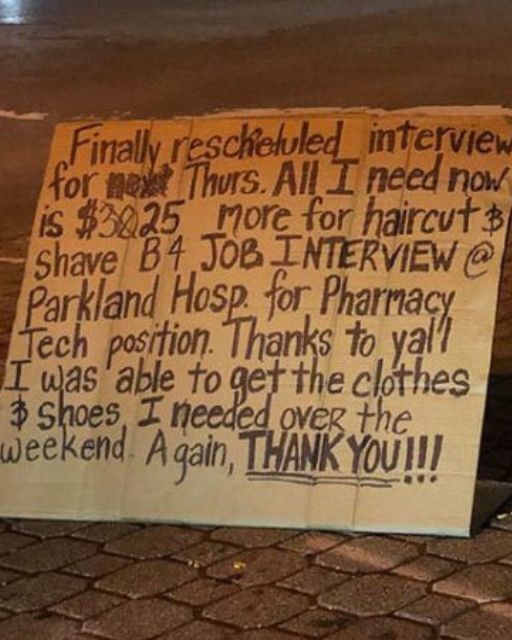 Finally rescheduled interview
for Thurs. All I need now
is $25 more for haircut &
shave B4 JOB INTERVIEW @
Parkland Hosp. for Pharmacy
Tech position. Thanks to yall
I was able to get the clothes
& shoes I needed over the
weekend. Again, THANK YOU!!!